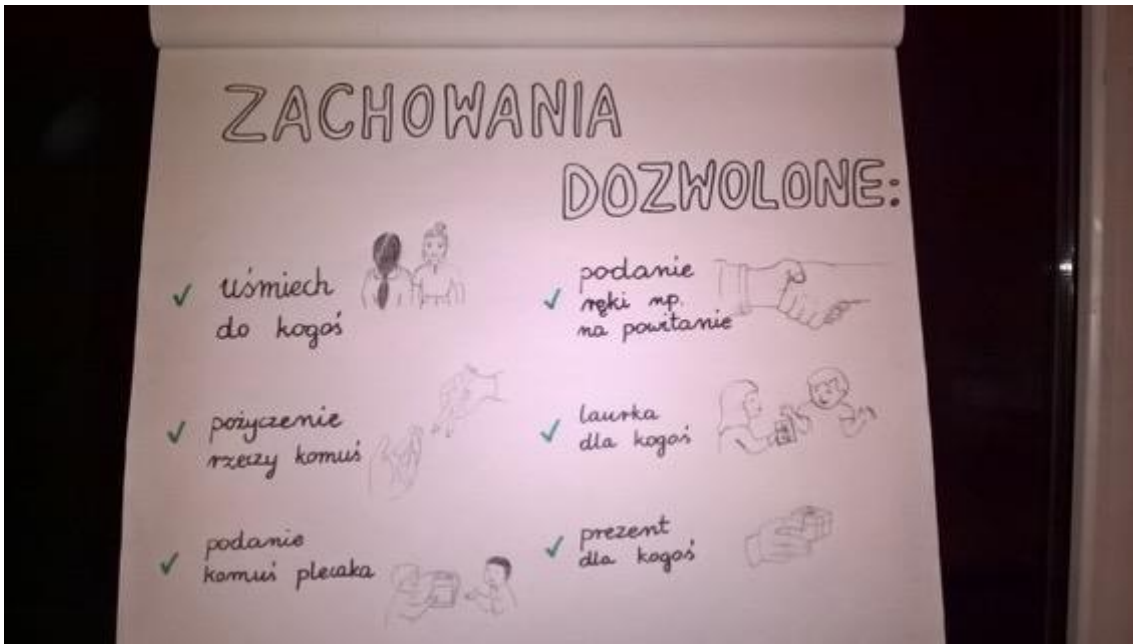 ZACHOWANIA
DOZWOLONE:
uśmiech
do kogoś
pożyczenie
rzeczy komuś
podanie
komuś plecaka
podanie
ręki np.
na powitanie
laurka
dla kogoś
prezent
dla kogoś